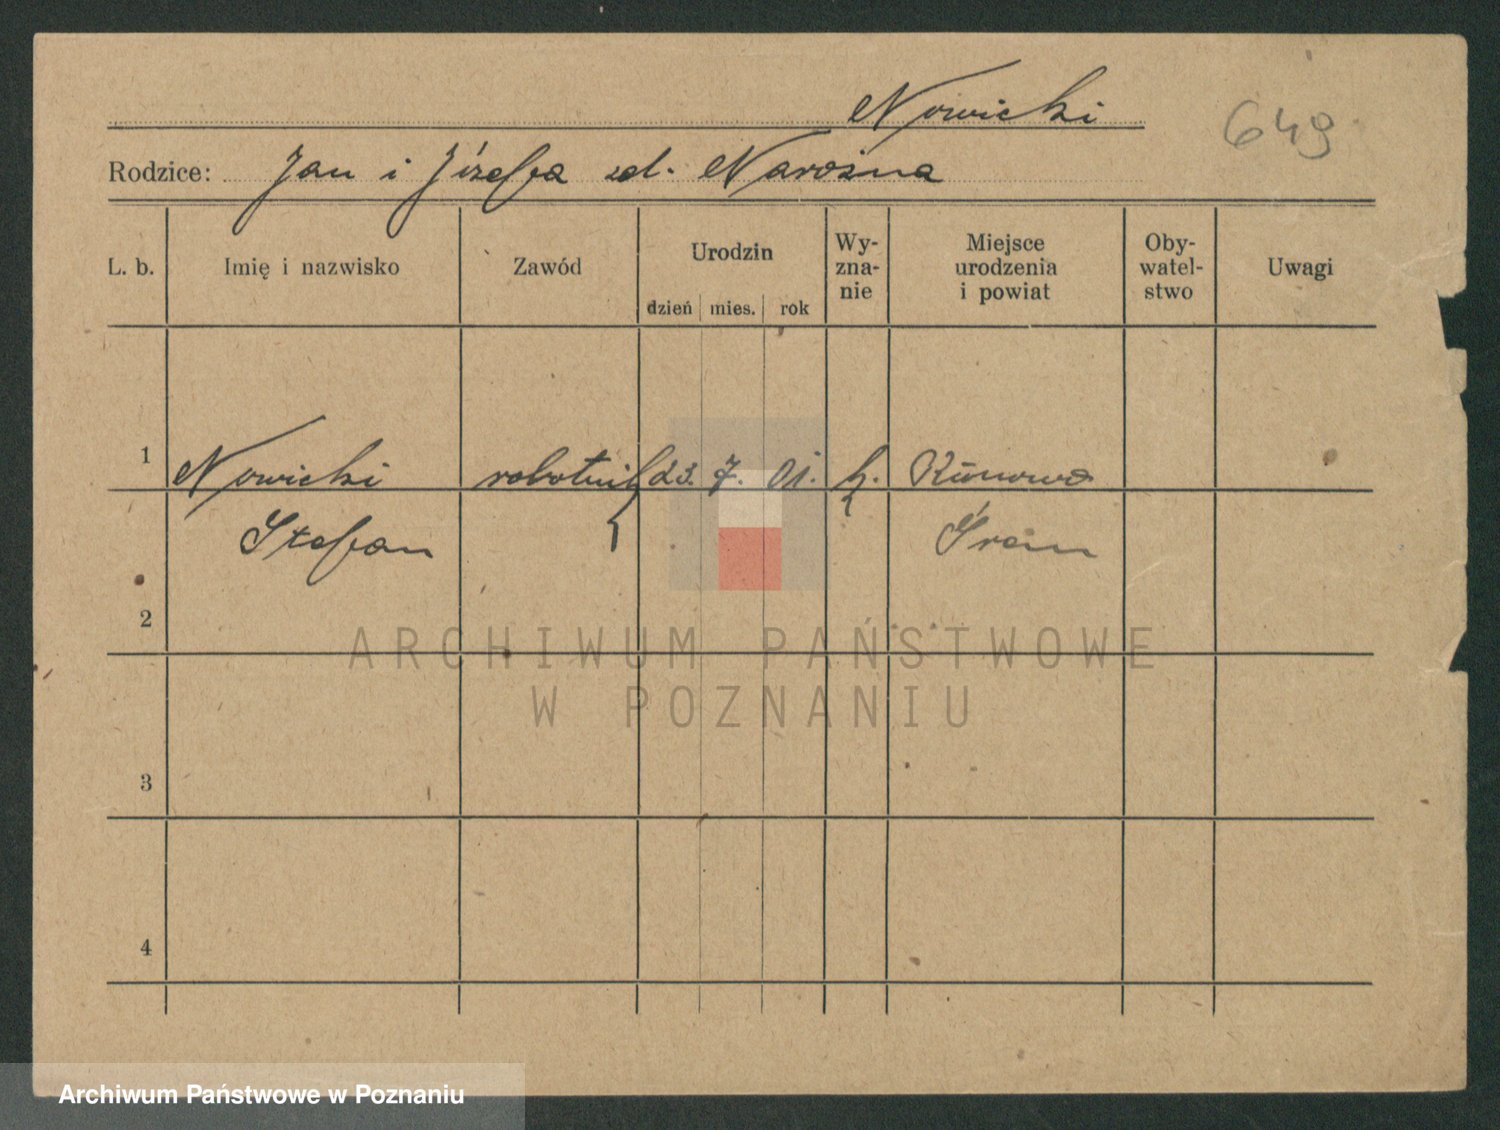 Nowicki
649
Rodzice: Jan i Józefa zd. Narożna
L. b.
Imię i nazwisko
Zawód
Urodzin
dzień mies. rok
Wy-
zna-
nie
Miejsce
urodzenia
i powiat
Oby-
watel-
stwo
Uwagi
1 Nowicki robotnik 23. 7. 01. k. Kūnowo
Stefan Śrem
2
ARCHIWUM PAŃSTWOWE
W POZNANIU
3
4
Archiwum Państwowe w Poznaniu